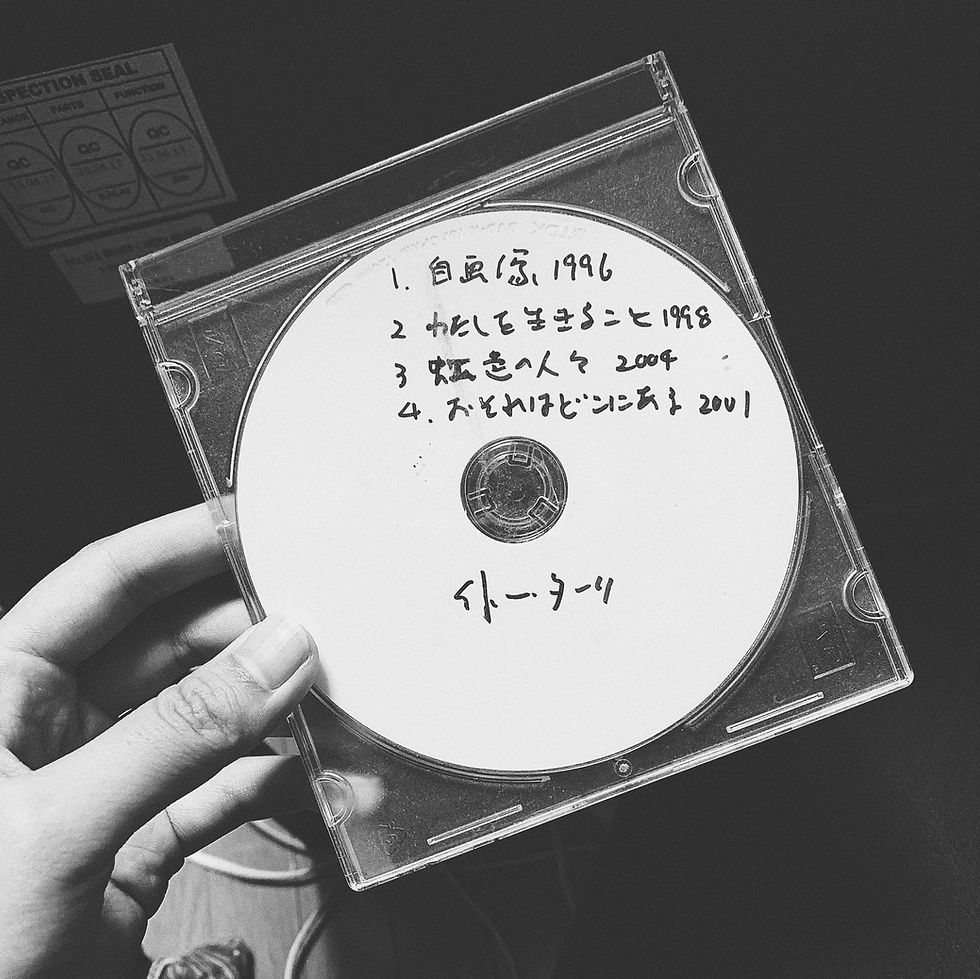 PECTION SEAL
PARTS FUNCTION
QC QC QC
1. 自画像 1996
2 わたしを生きること 1998
3 虹色の人々 2004
4. おそれはどこにある 2001
イトー・ターリ